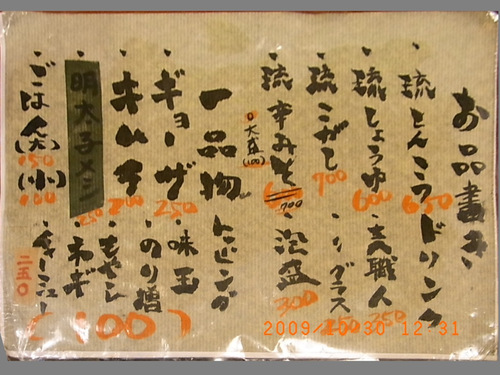 お品書き
琉とんこつ 650
琉しょうゆ 600
琉こがし 700
琉辛みそ 700
○大盛(100)
ドリンク
・玄職人 350
・〃グラス 250
・泡盛 300
一品物
・ギョーザ 250
・キムチ 200
・明太子メシ 250
・ごはん(大)150
(小)100
トッピング
味玉
のり増
もやし
ネギ
(100)
チャーシュー
二五〇
2009/ 30 12:31